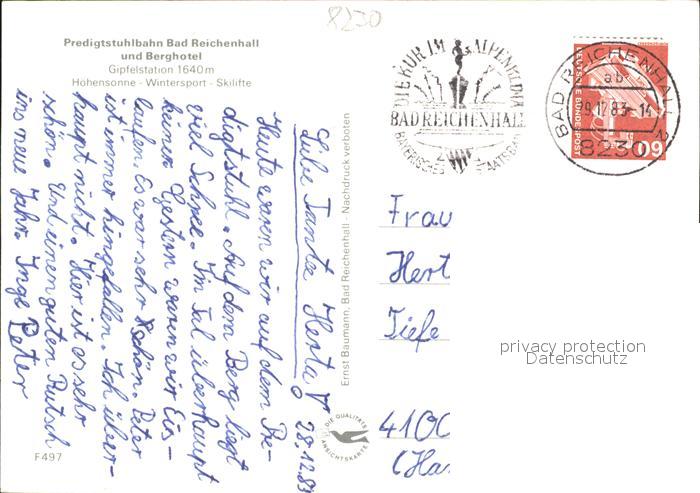 8230
Predigtstuhlbahn Bad Reichenhall
und Berghotel
Gipfelstation 1640 m
Höhensonne - Wintersport - Skilifte
Liebe Tante Herta! 28.12.83
Heute waren wir auf dem Pre-
digtstuhl. Auf dem Berg liegt
viel Schnee. Im Tal überhaupt
keiner. Gestern waren wir Eis-
laufen. Es war sehr schön. Peter
ist immer hingefallen. Ich über-
haupt nicht. Hier ist es sehr
schön. Und einen guten Rutsch
ins neue Jahr. Inge Peter
F497
Ernst Baumann, Bad Reichenhall - Nachdruck verboten
DIE QUALITÄTS
ANSICHTSKARTE
DIE KUR IM ALPENKLIMA
BAD REICHENHALL
BAYERISCHES STAATSBAD
BAD REICHENHALL
ab
29.12.83-14
8230
DEUTSCHE BUNDESPOST
60
Frau
Hert
Tiefe
4100
(Ha
privacy protection
Datenschutz